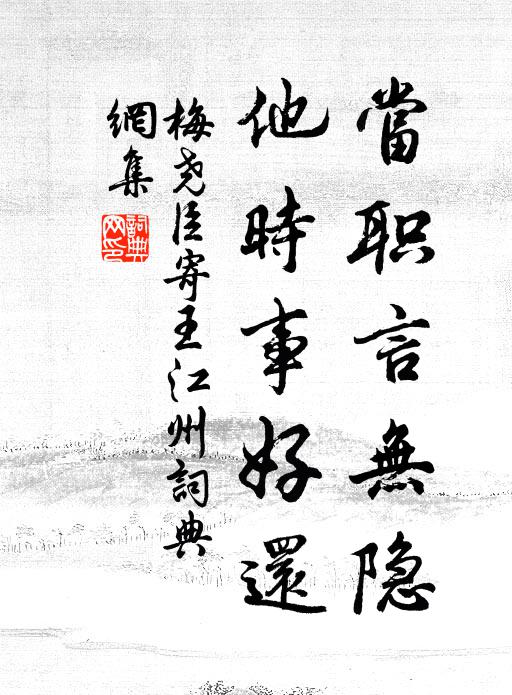 當职言無隐
他時事好還
梅尧臣寄王江州詞典
網集
詞典
网印